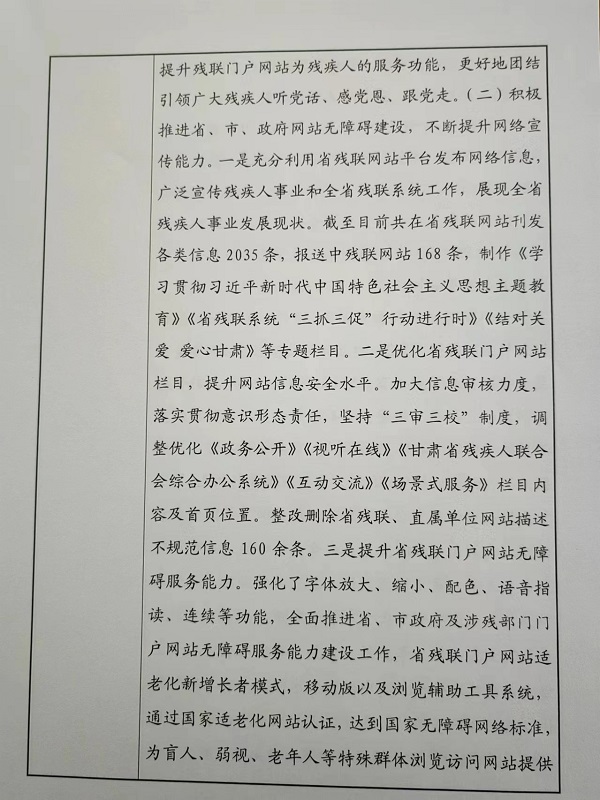 提升残联门户网站为残疾人的服务功能，更好地团结
引领广大残疾人听党话、感党恩、跟党走。（二）积极
推进省、市、政府网站无障碍建设，不断提升网络宣
传能力。一是充分利用省残联网站平台发布网络信息，
广泛宣传残疾人事业和全省残联系统工作，展现全省
残疾人事业发展现状。截至目前共在省残联网站刊发
各类信息 2035 条，报送中残联网站 168 条，制作《学
习贯彻习近平新时代中国特色社会主义思想主题教
育》《省残联系统“三抓三促”行动进行时》《结对关
爱 爱心甘肃》等专题栏目。二是优化省残联门户网站
栏目，提升网站信息安全水平。加大信息审核力度，
落实贯彻意识形态责任，坚持“三审三校”制度，调
整优化《政务公开》《视听在线》《甘肃省残疾人联合
会综合办公系统》《互动交流》《场景式服务》栏目内
容及首页位置。整改删除省残联、直属单位网站描述
不规范信息 160 余条。三是提升省残联门户网站无障
碍服务能力。强化了字体放大、缩小、配色、语音指
读、连续等功能，全面推进省、市政府及涉残部门门
户网站无障碍服务能力建设工作，省残联门户网站适
老化新增长者模式，移动版以及浏览辅助工具系统，
通过国家适老化网站认证，达到国家无障碍网络标准，
为盲人、弱视、老年人等特殊群体浏览访问网站提供